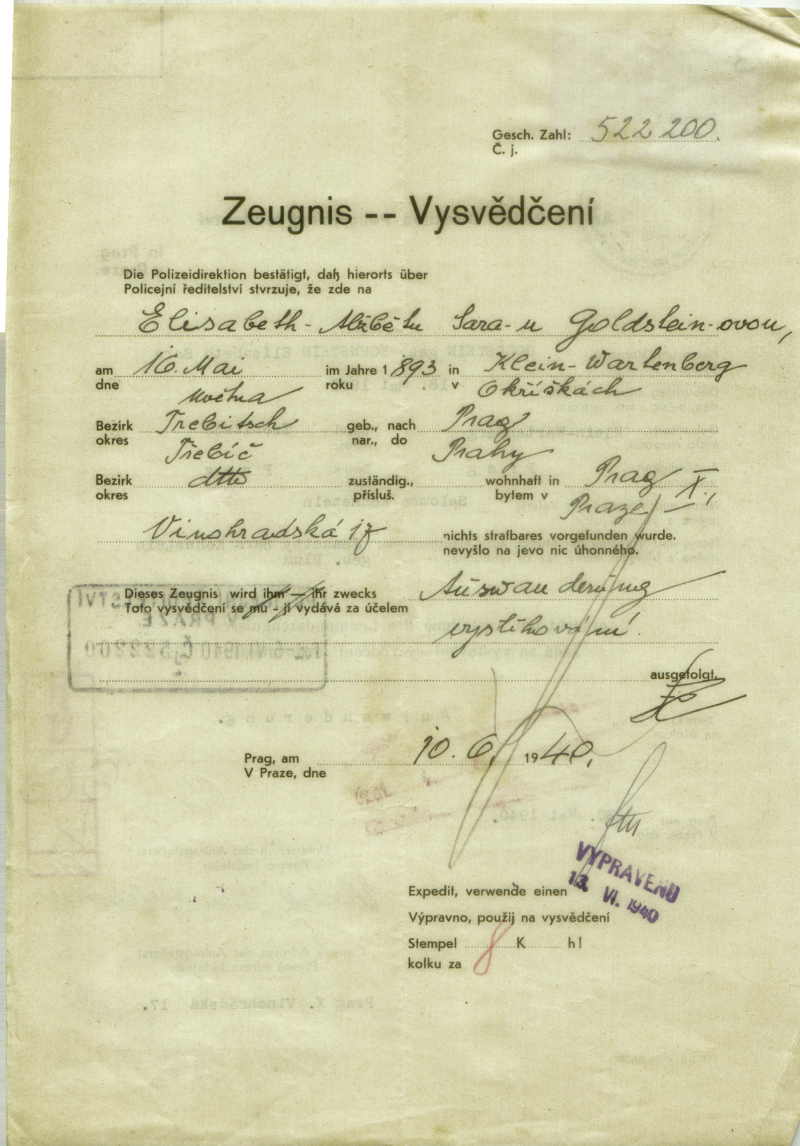 Gesch. Zahl: 522 200.
Č. j.
Zeugnis -- Vysvědčení
Die Polizeidirektion bestätigt, daß hierorts über
Policejní ředitelství stvrzuje, že zde na
Elisabeth - Alžbětu Sara-u Goldstein-ovou,
am 16. Mai im Jahre 1893 in Klein-Wartenberg
dne května roku v Okříškách
Bezirk Trebitsch geb., nach Prag
okres Třebíč nar., do Prahy
Bezirk dtto zuständig., wohnhaft in Prag
okres přísluš. bytem v Praze X.,
Vinohradská 17 nichts strafbares vorgefunden wurde.
nevyšlo na jevo nic úhonného.
Dieses Zeugnis wird ihm — ihr zwecks Auswanderung
Toto vysvědčení se mu - jí vydává za účelem
vystěhování.
V PRAZE
-6.VI.1940 Č.522200
ausgefolgt.
Prag, am 10. 6. 1940.
V Praze, dne
VYPRAVENO
13. VI. 1940
Expedit, verwende einen
Výpravno, použij na vysvědčení
Stempel 8 K h!
kolku za
Prag X. Vinohradská 17.